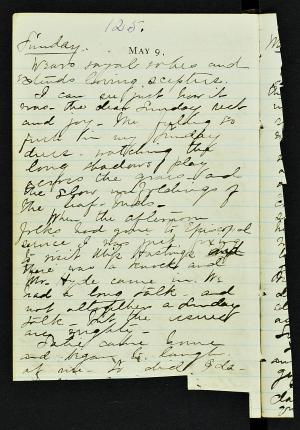 125.
Sunday. MAY 9.
Wears royal robes and
extends loving sceptre.
I can see just how it
was the dear Sunday rest
and joy. The feeling so
in my Sunday
dress. watching the
long shadows play
across the grass and
the slow unfoldings of
the leaf-buds.
When the afternoon
folks had gone to Episcopal
service I was just
to visit Miss Hastings
there was a knock and
Mr. Hyde came in. We
had a long talk and
not altogether a Sunday
talk. but the issues
are mighty.
came home
and began to laugh
at me. So did Ida.